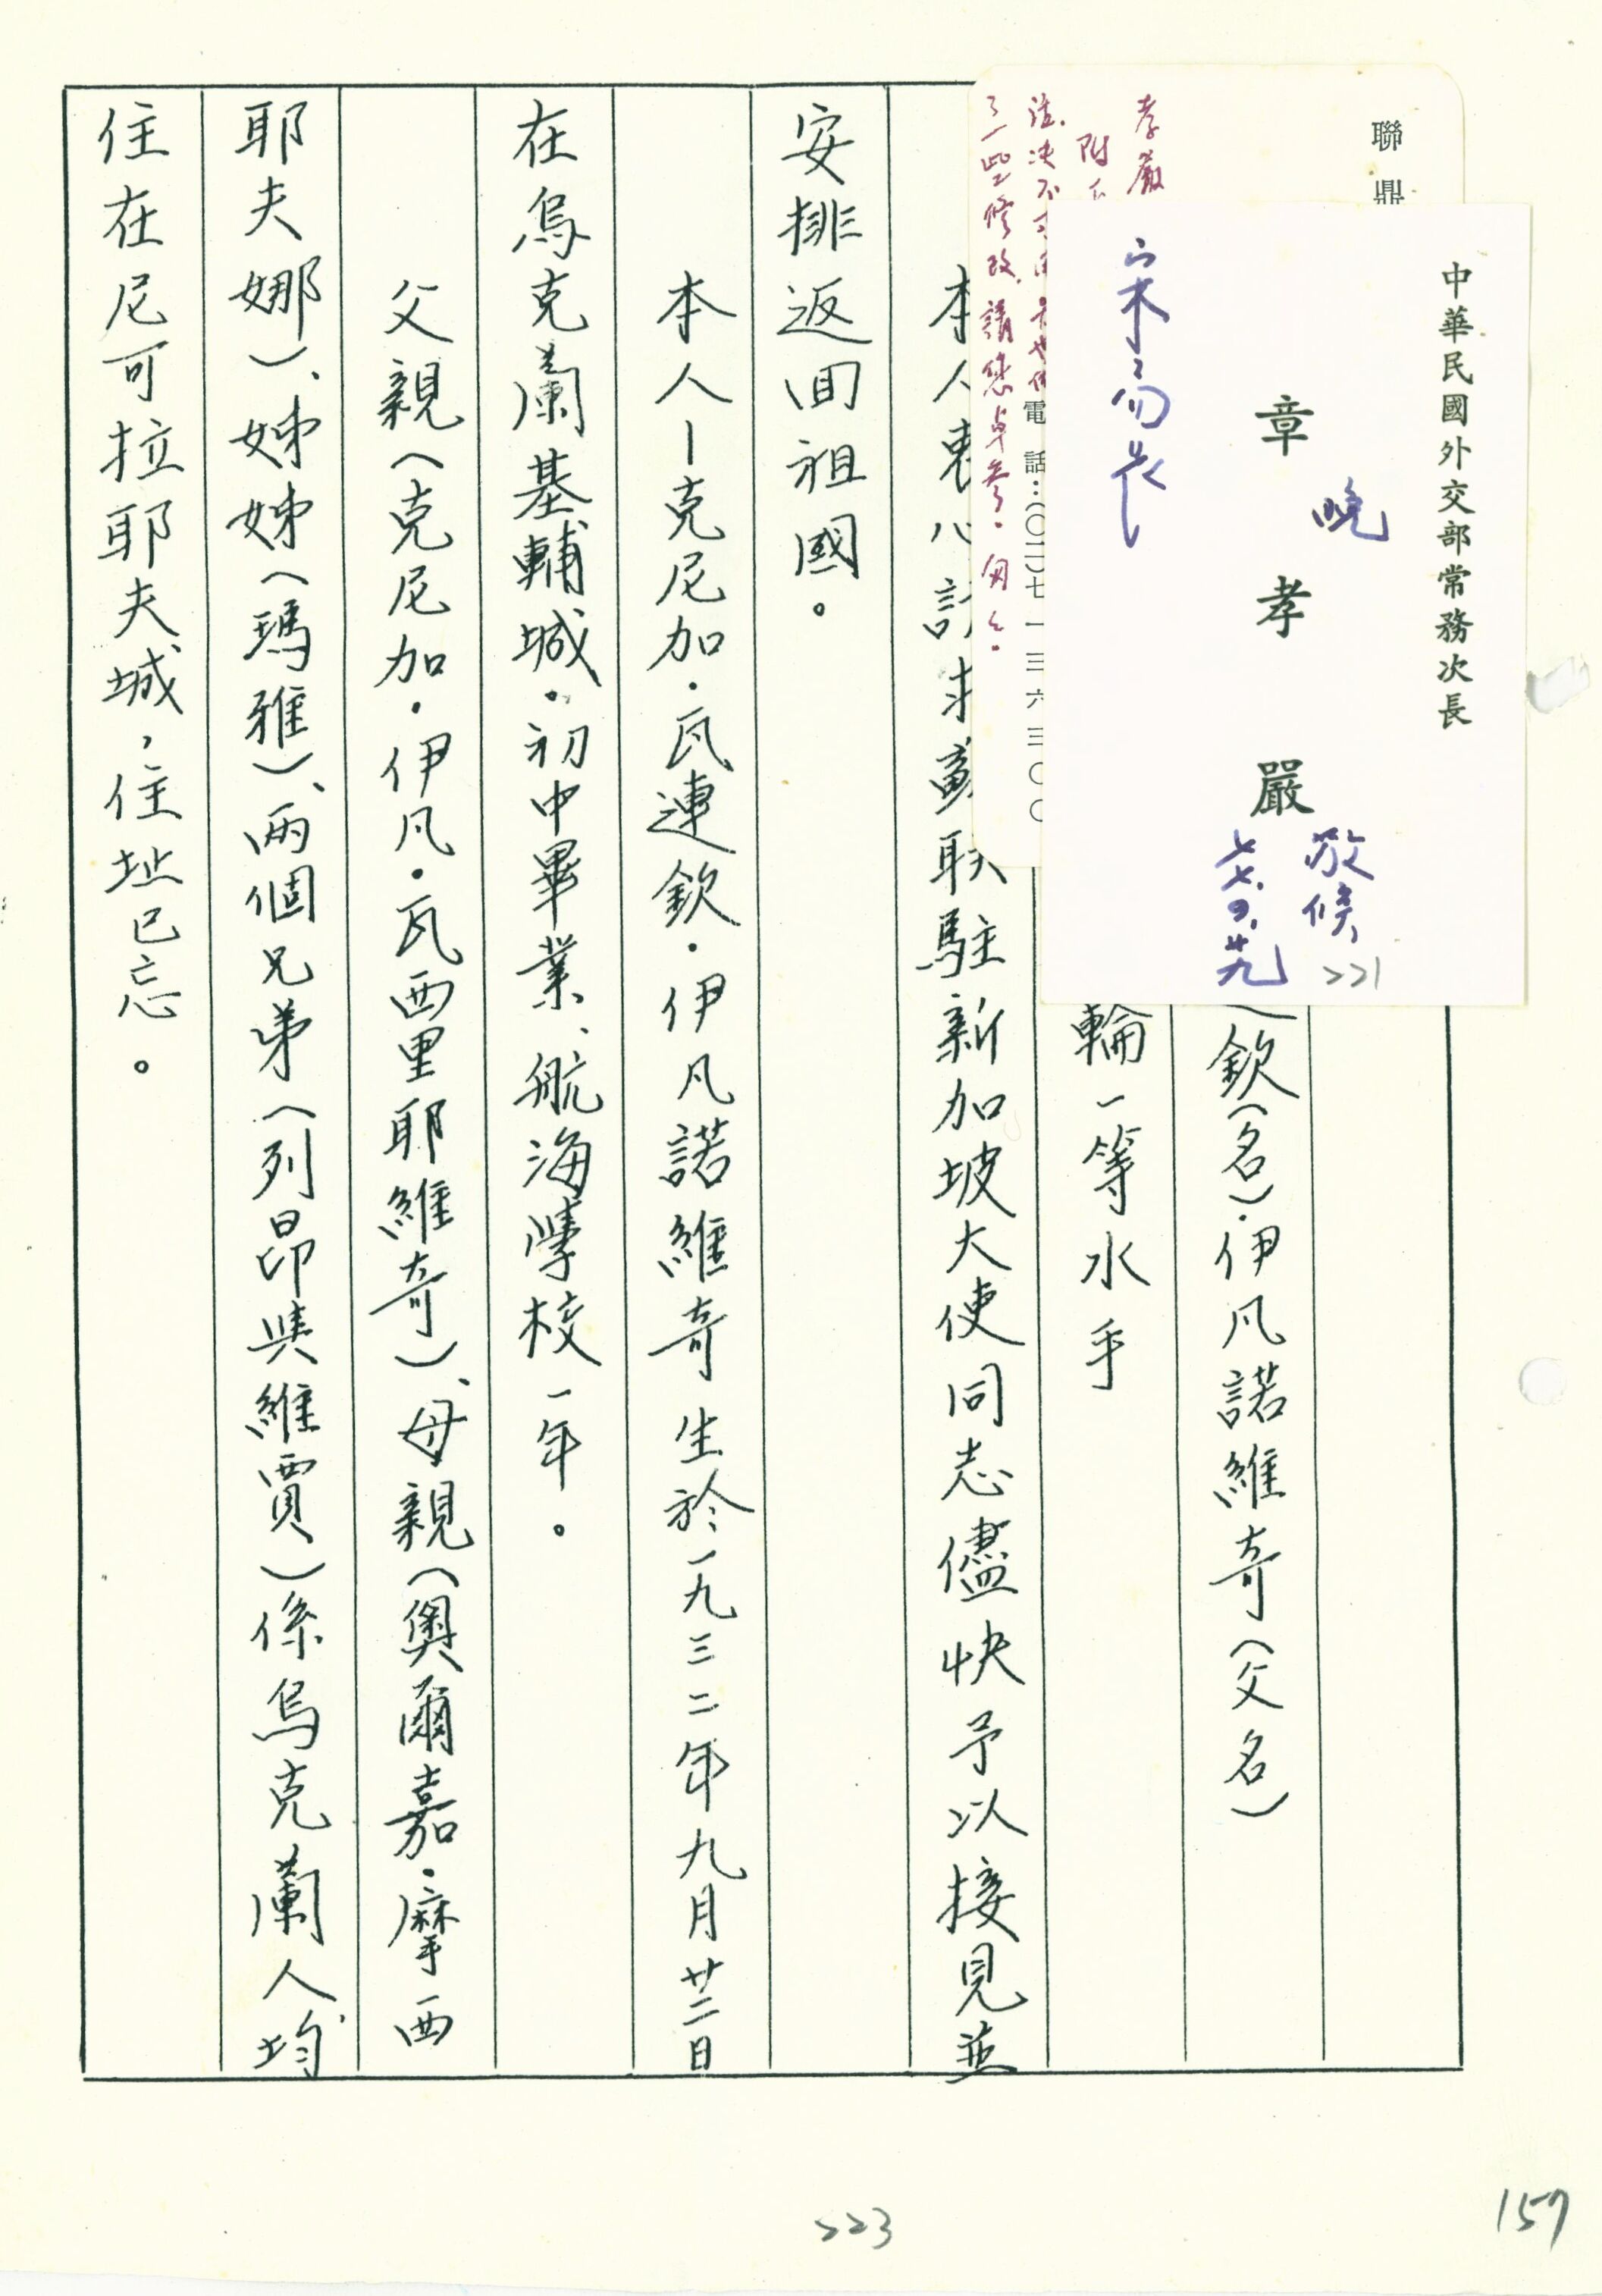 中華民國外交部常務次長
章孝嚴
晚
敬候
宋局長
七七、四、廿九
221
聯鼎
孝嚴
附
了一些修改,請您卓參。匆々。
電話:(〇二)七一三六三〇〇
欽(名)·伊凡諾維奇(父名)
輪一等水手
本人衷心請求蘇联駐新加坡大使同志儘快予以接見並
安排返回祖國。
本人—克尼加·瓦連欽·伊凡諾維奇生於一九三二年九月廿二日
在烏克蘭基輔城。初中畢業、航海學校一年。
父親(克尼加·伊凡·瓦西里耶維奇)、母親(奧爾嘉·摩西
耶夫娜)、姊姊(瑪雅)、兩個兄弟(列昂與維賈)係烏克蘭人,均
住在尼可拉耶夫城,住址已忘。
223
157